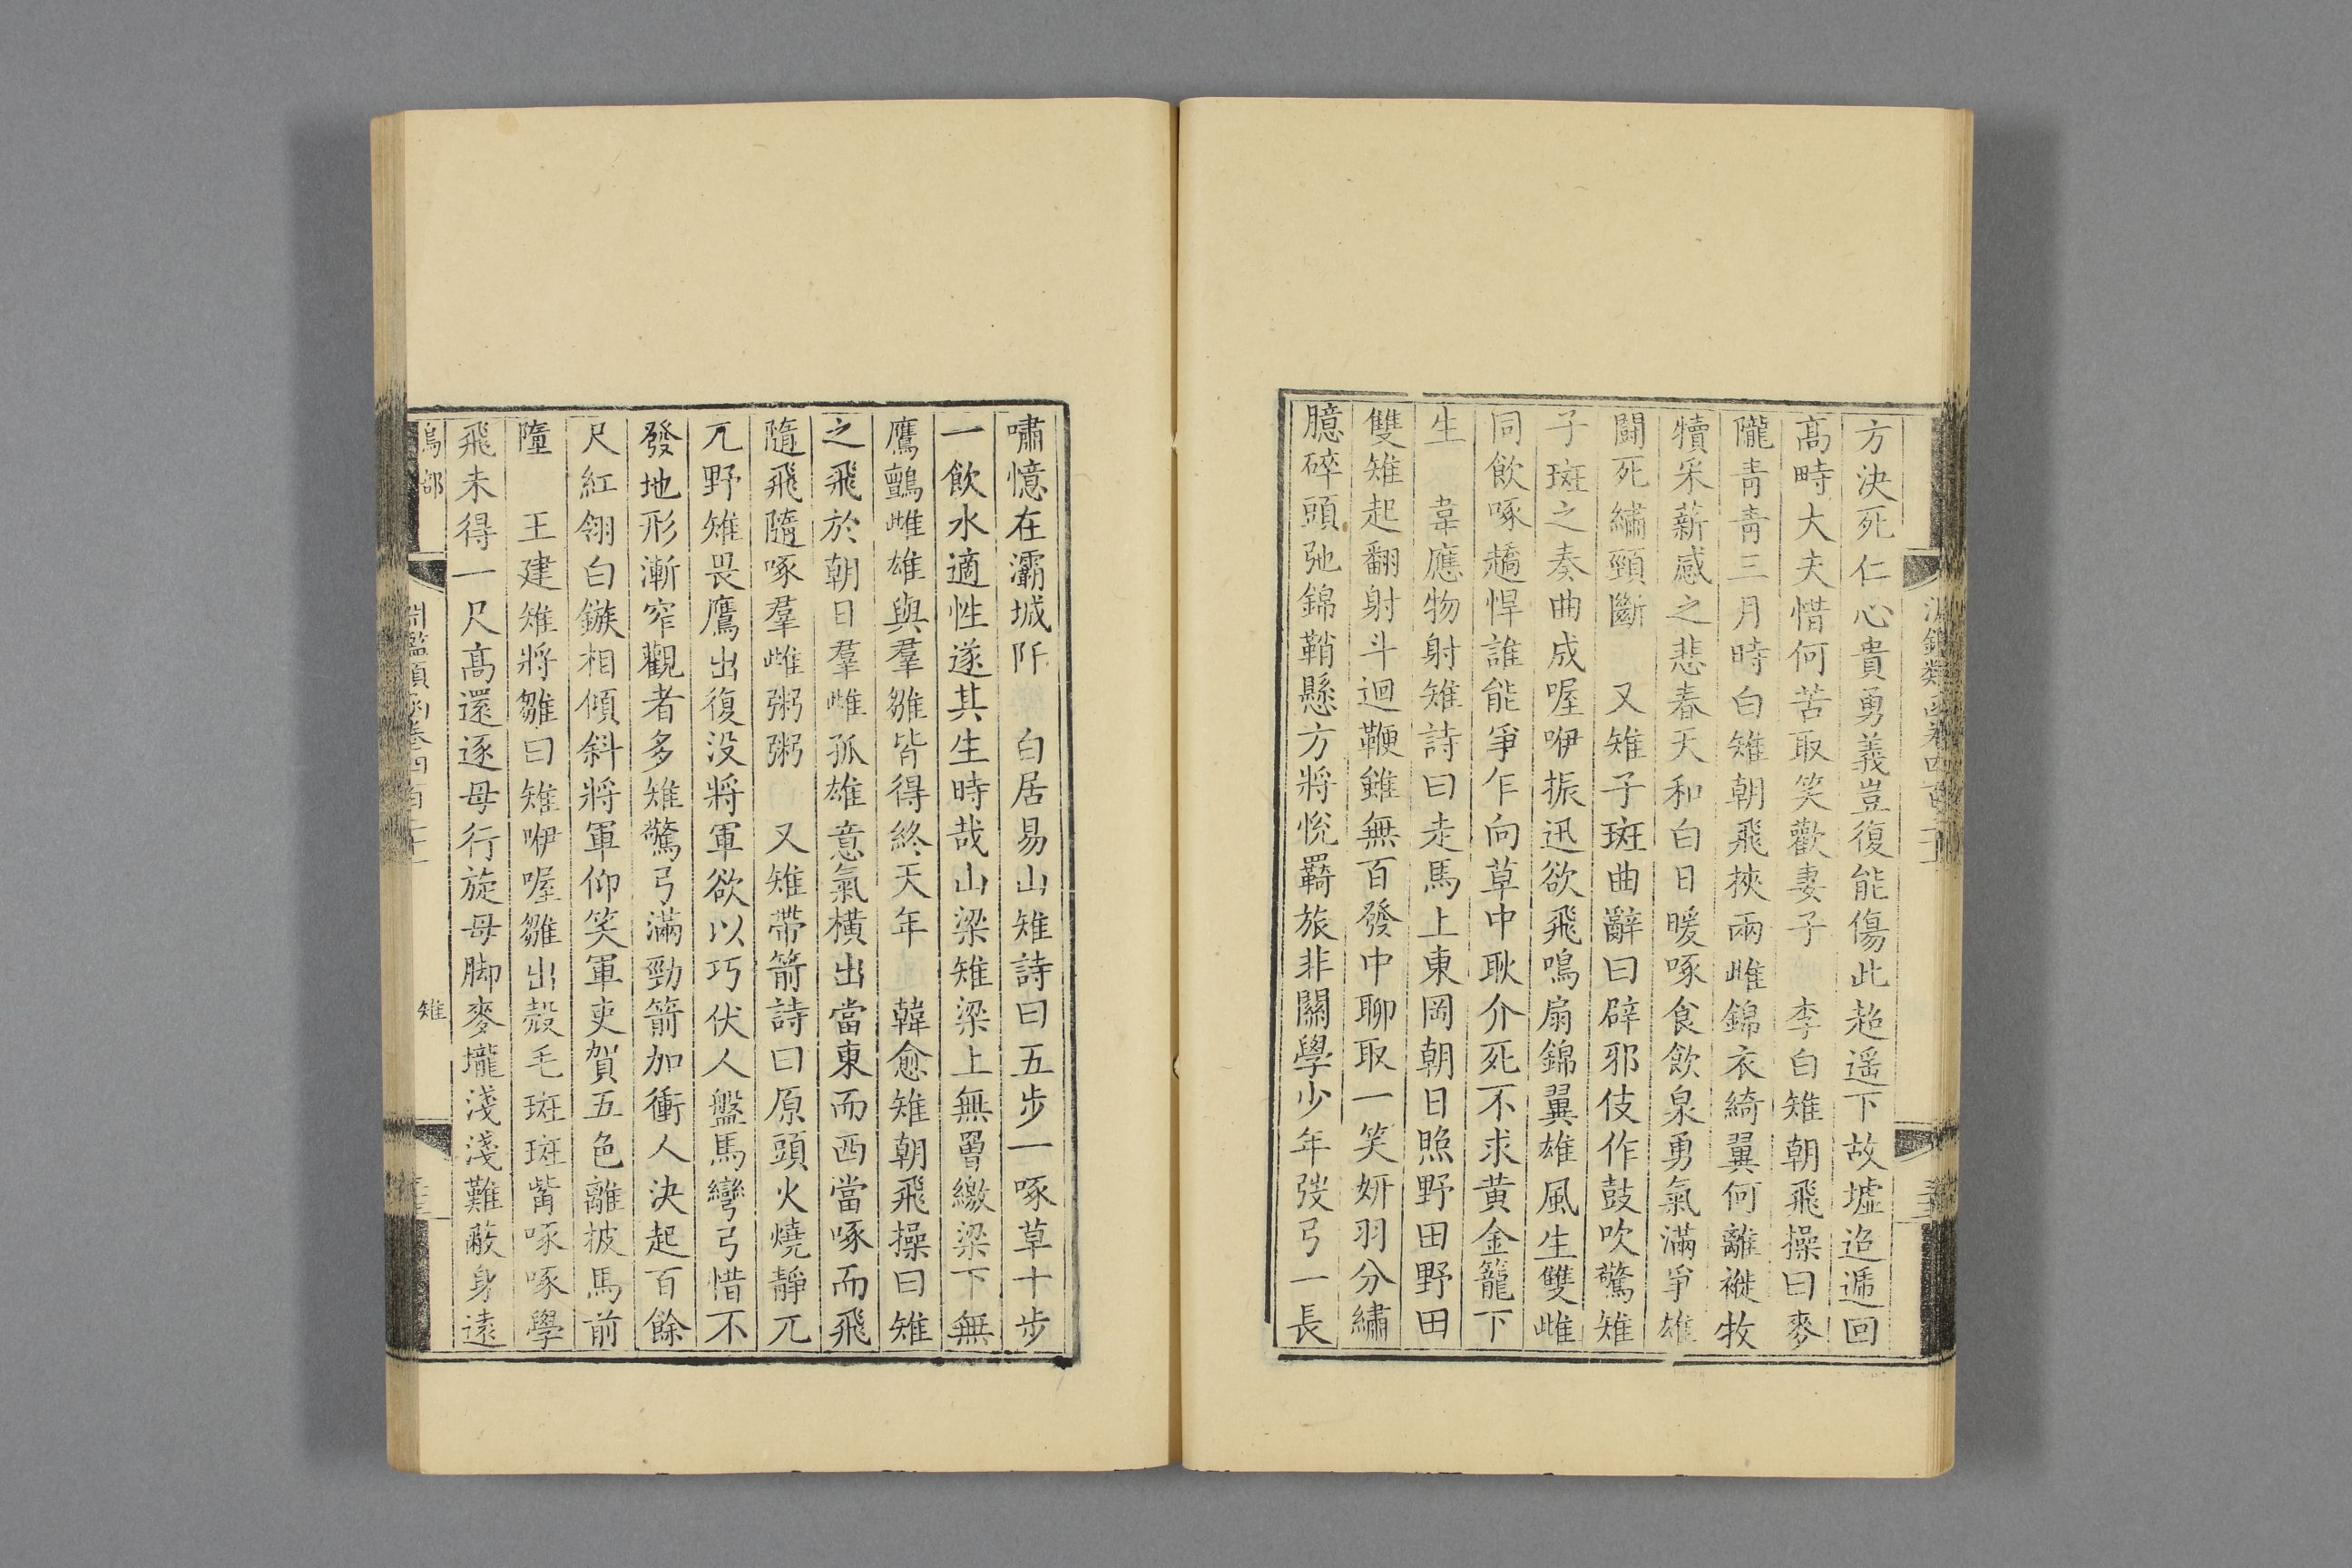 方決死仁心貴勇義豈復能傷此超遥下故墟迢遞回
髙畤大夫惜何苦取笑歡妻子　李白雉朝飛操曰麥
隴靑靑三月時白雉朝飛挾兩雌錦衣綺翼何離褷牧
犢采薪感之悲春天和白日暖啄食飲泉勇氣滿爭雄
鬪死繡頸斷　又雉子斑曲辭曰辟邪伎作鼓吹驚雉
子斑之奏曲成喔咿振迅欲飛鳴扇錦翼雄風生雙雌
同飲啄趫悍誰能爭乍向草中耿介死不求黃金籠下
生　韋應物射雉詩曰走馬上東岡朝日照野田野田
雙雉起翻射斗迴鞭雖無百發中聊取一笑妍羽分繡
臆碎頭弛錦鞘懸方將悅羇旅非關學少年弢弓一長
嘯憶在灞城阡　白居易山雉詩曰五步一啄草十步
一飲水適性遂其生時哉山梁雉梁上無罾繳梁下無
鷹鸇雌雄與羣雛皆得終天年　韓愈雉朝飛操曰雉
之飛於朝日羣雌孤雄意氣橫出當東而西當啄而飛
隨飛隨啄羣雌粥粥　又雉帶箭詩曰原頭火燒靜兀
兀野雉畏鷹出復没將軍欲以巧伏人盤馬彎弓惜不
發地形漸窄觀者多雉驚弓滿勁箭加衝人決起百餘
尺紅翎白鏃相傾斜將軍仰笑軍吏賀五色離披馬前
墮　王建雉將雛曰雉咿喔雛出殻毛斑斑觜啄啄學
飛未得一尺髙還逐母行旋母脚麥壠淺淺難蔽身遠
鳥部　淵鑑類函卷四百二十　雉